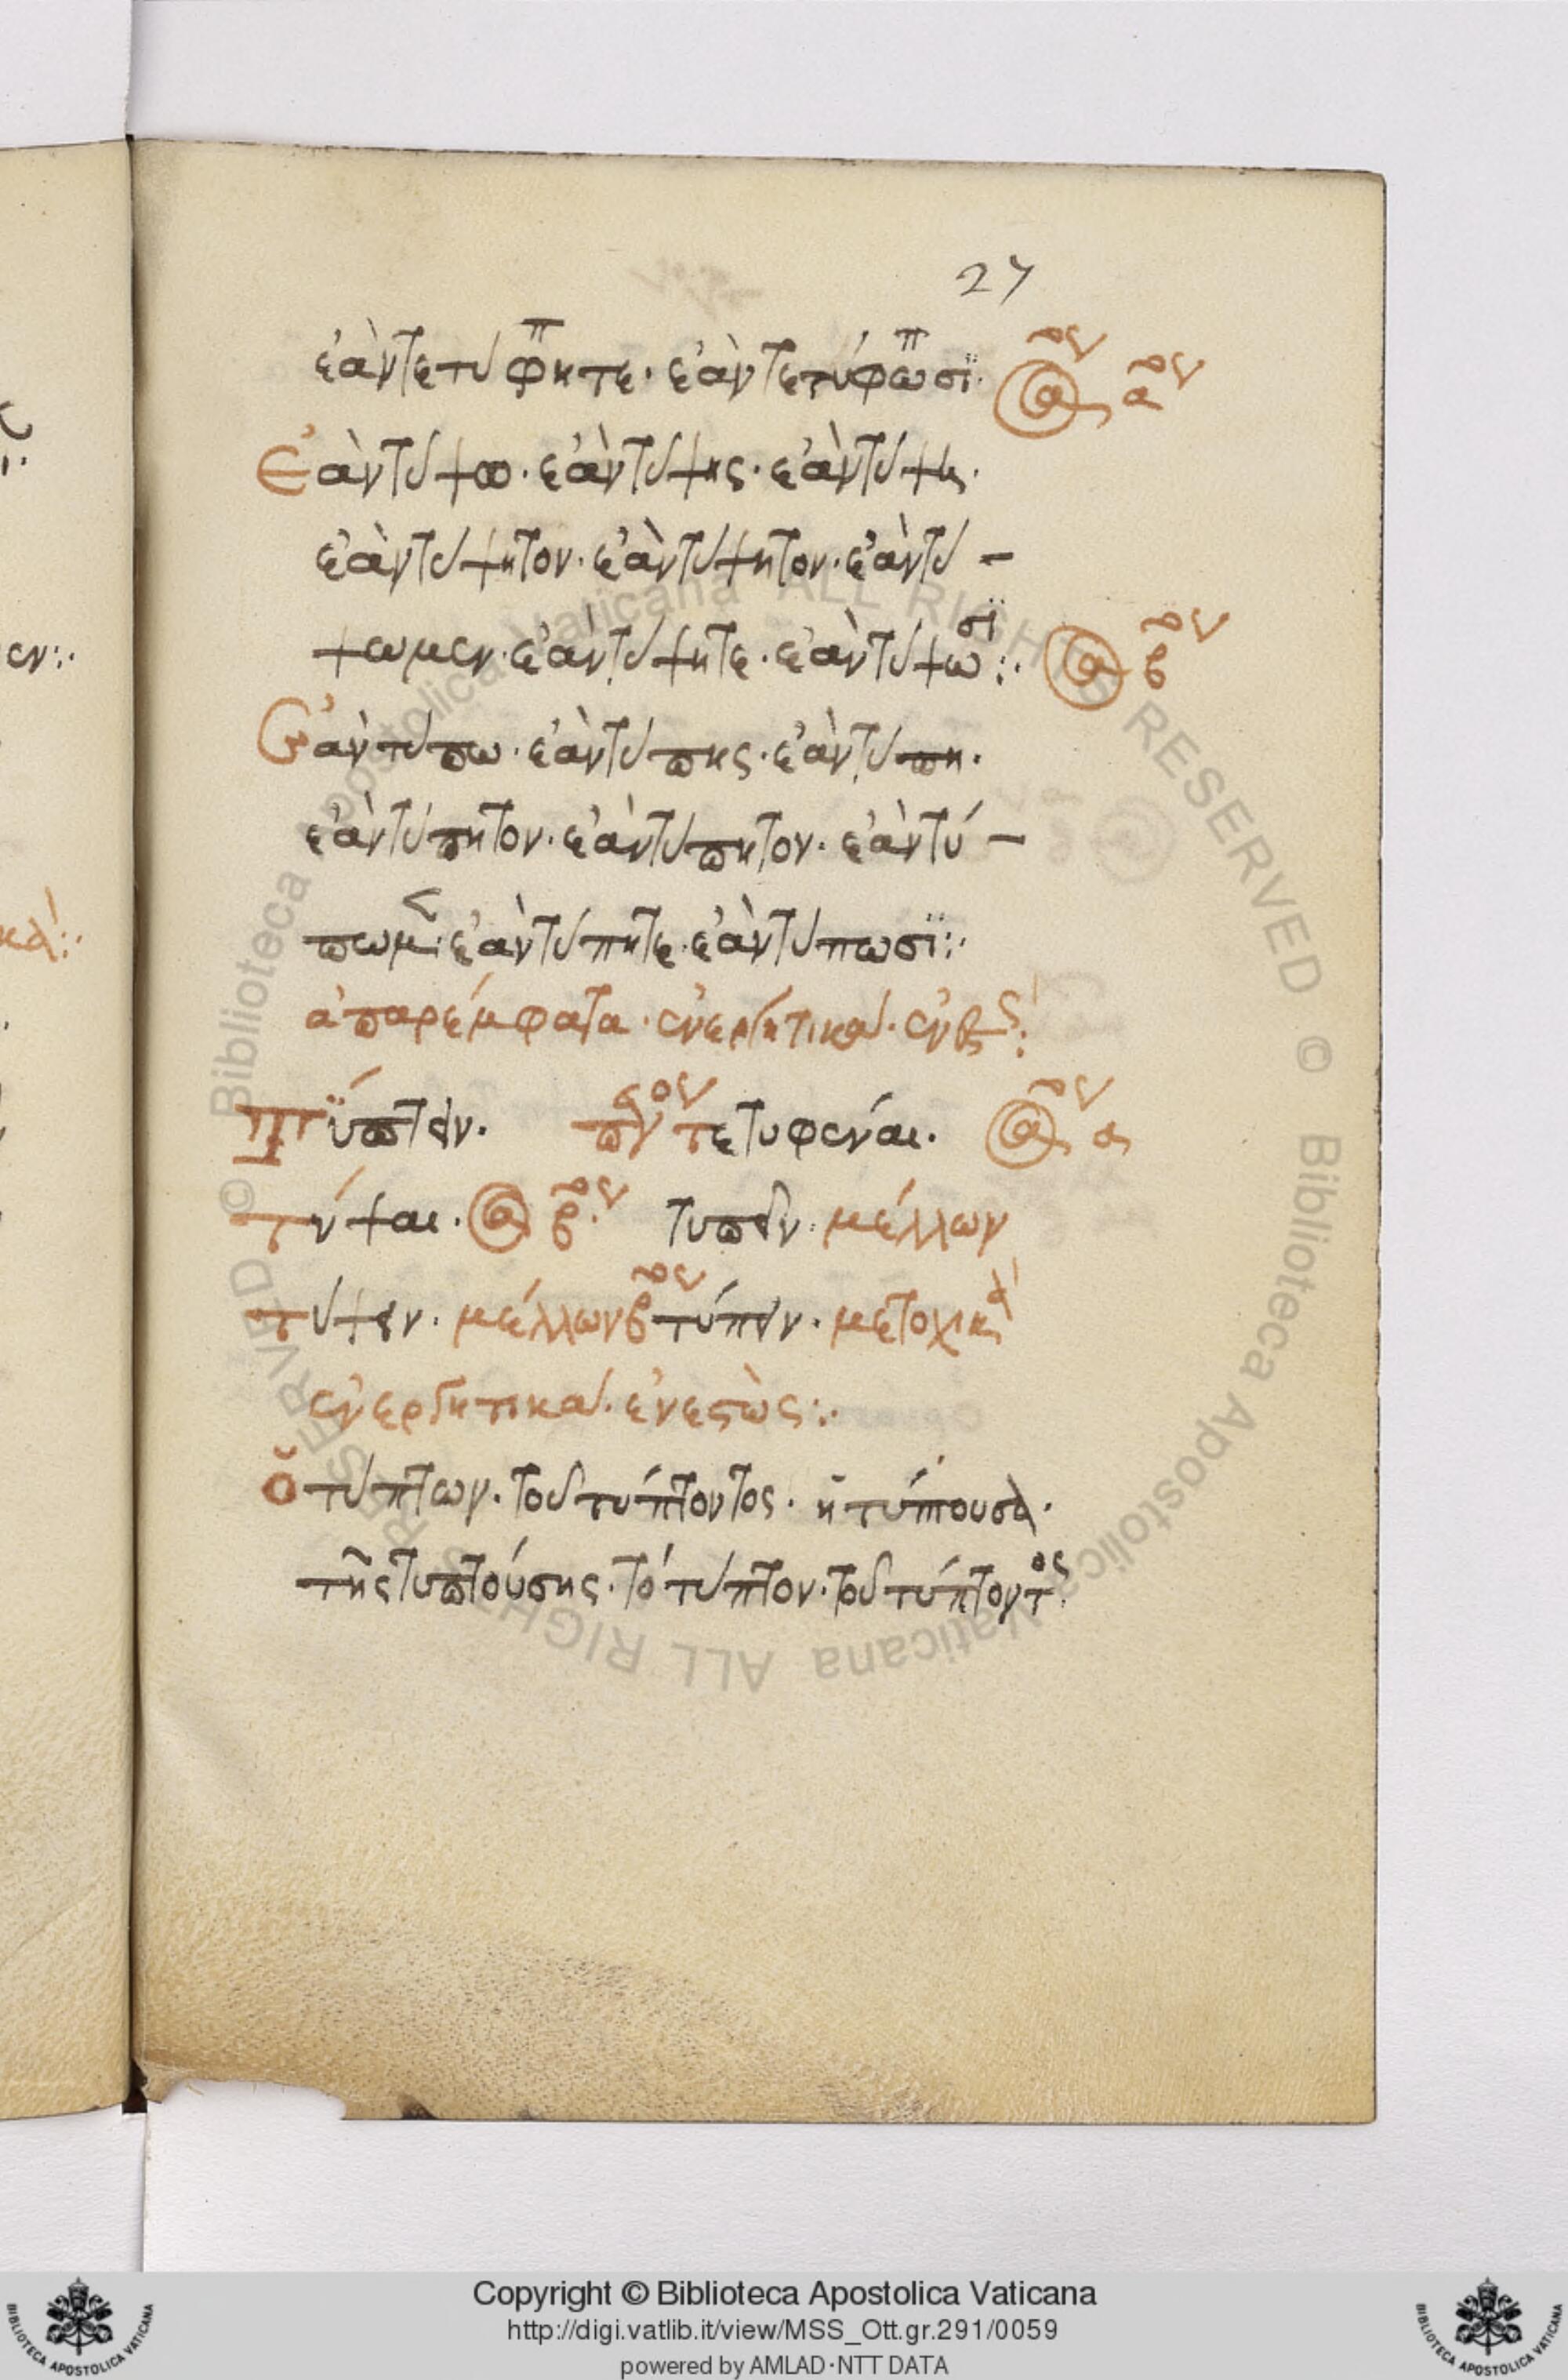 27
ἐὰν τετύφητε· ἐὰν τετύφωσϊ·
Ἐὰν τύψω· ἐὰν τύψης· ἐὰν τύψη·
ἐὰν τύψητον· ἐὰν τύψητον· ἐὰν τύ –
ψωμεν· ἐὰν τύψητε· ἐὰν τύψωσϊ :·
Ἐὰν τύπω· ἐὰν τύπης· ἐὰν τύπη·
ἐὰν τύπητον· ἐὰν τύπητον· ἐὰν τύ –
πωμεν· ἐὰν τύπητε· ἐὰν τύπωσϊ :·
ἀπαρέμφατα· ἐνεργητικά·
Τύπτειν· τετυφέναι· α
τύψαι· β τυπεῖν· μέλλων
τύψειν· μέλλων β τύπειν· μετοχικὰ
ἐνεργητικά· ἐνεστὼς :·
ὁ τύπτων· τοῦ τύπτοντος· ἡ τύπτουσα·
τῆς τυπτούσης· τό τύπτον· τοῦ τύπτοντος
Copyright © Biblioteca Apostolica Vaticana
http://digi.vatlib.it/view/MSS_Ott.gr.291/0059
powered by AMLAD·NTT DATA